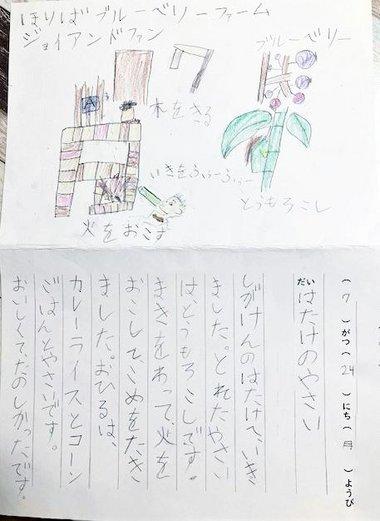 ほりばブルーベリーファーム
ジョイアンドファン
ブルーベリー
木をきる
いきをふぅーふぅー
とうもろこし
火をおこす
(7)がつ(24)にち(月)ようび
だい はたけのやさい
しがけんのはたけへいき
ました。とれたやさい
は、とうもろこしです。
まきをわって、火を
おこして、こめをたき
ました。おひるは、
カレーライスとコーン
ごはんとやさいです。
おいしくて、たのしかったです。